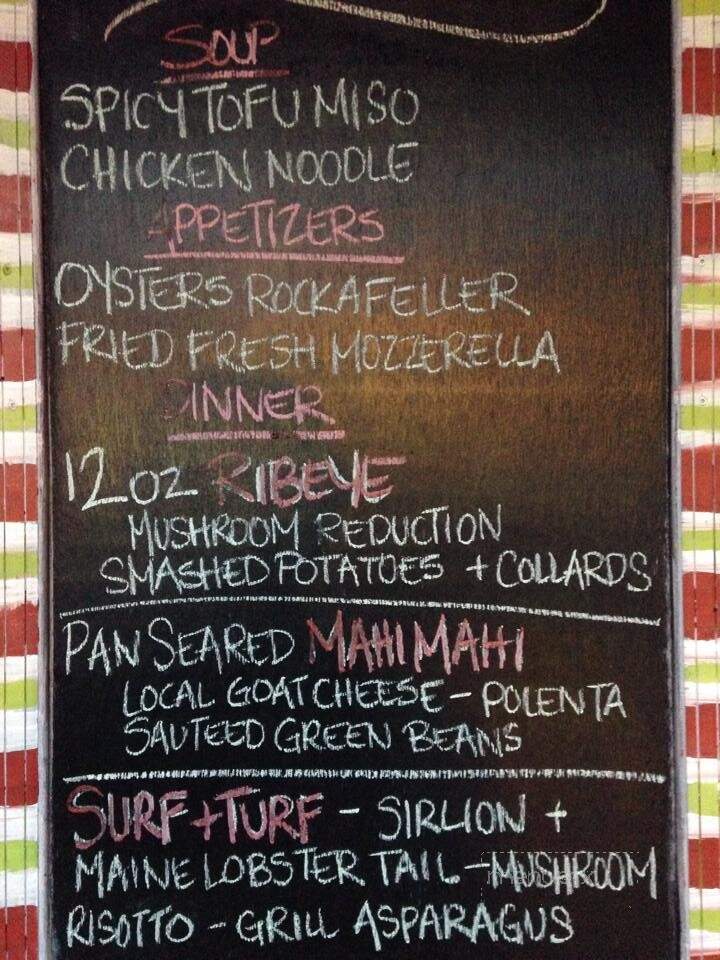 SOUP
SPICY TOFU MISO
CHICKEN NOODLE
APPETIZERS
OYSTERS ROCKAFELLER
FRIED FRESH MOZZERELLA
DINNER
12 OZ RIBEYE
MUSHROOM REDUCTION
SMASHED POTATOES + COLLARDS
PAN SEARED MAHI MAHI
LOCAL GOAT CHEESE - POLENTA
SAUTEED GREEN BEANS
SURF + TURF - SIRLION +
MAINE LOBSTER TAIL - MUSHROOM
RISOTTO - GRILL ASPARAGUS